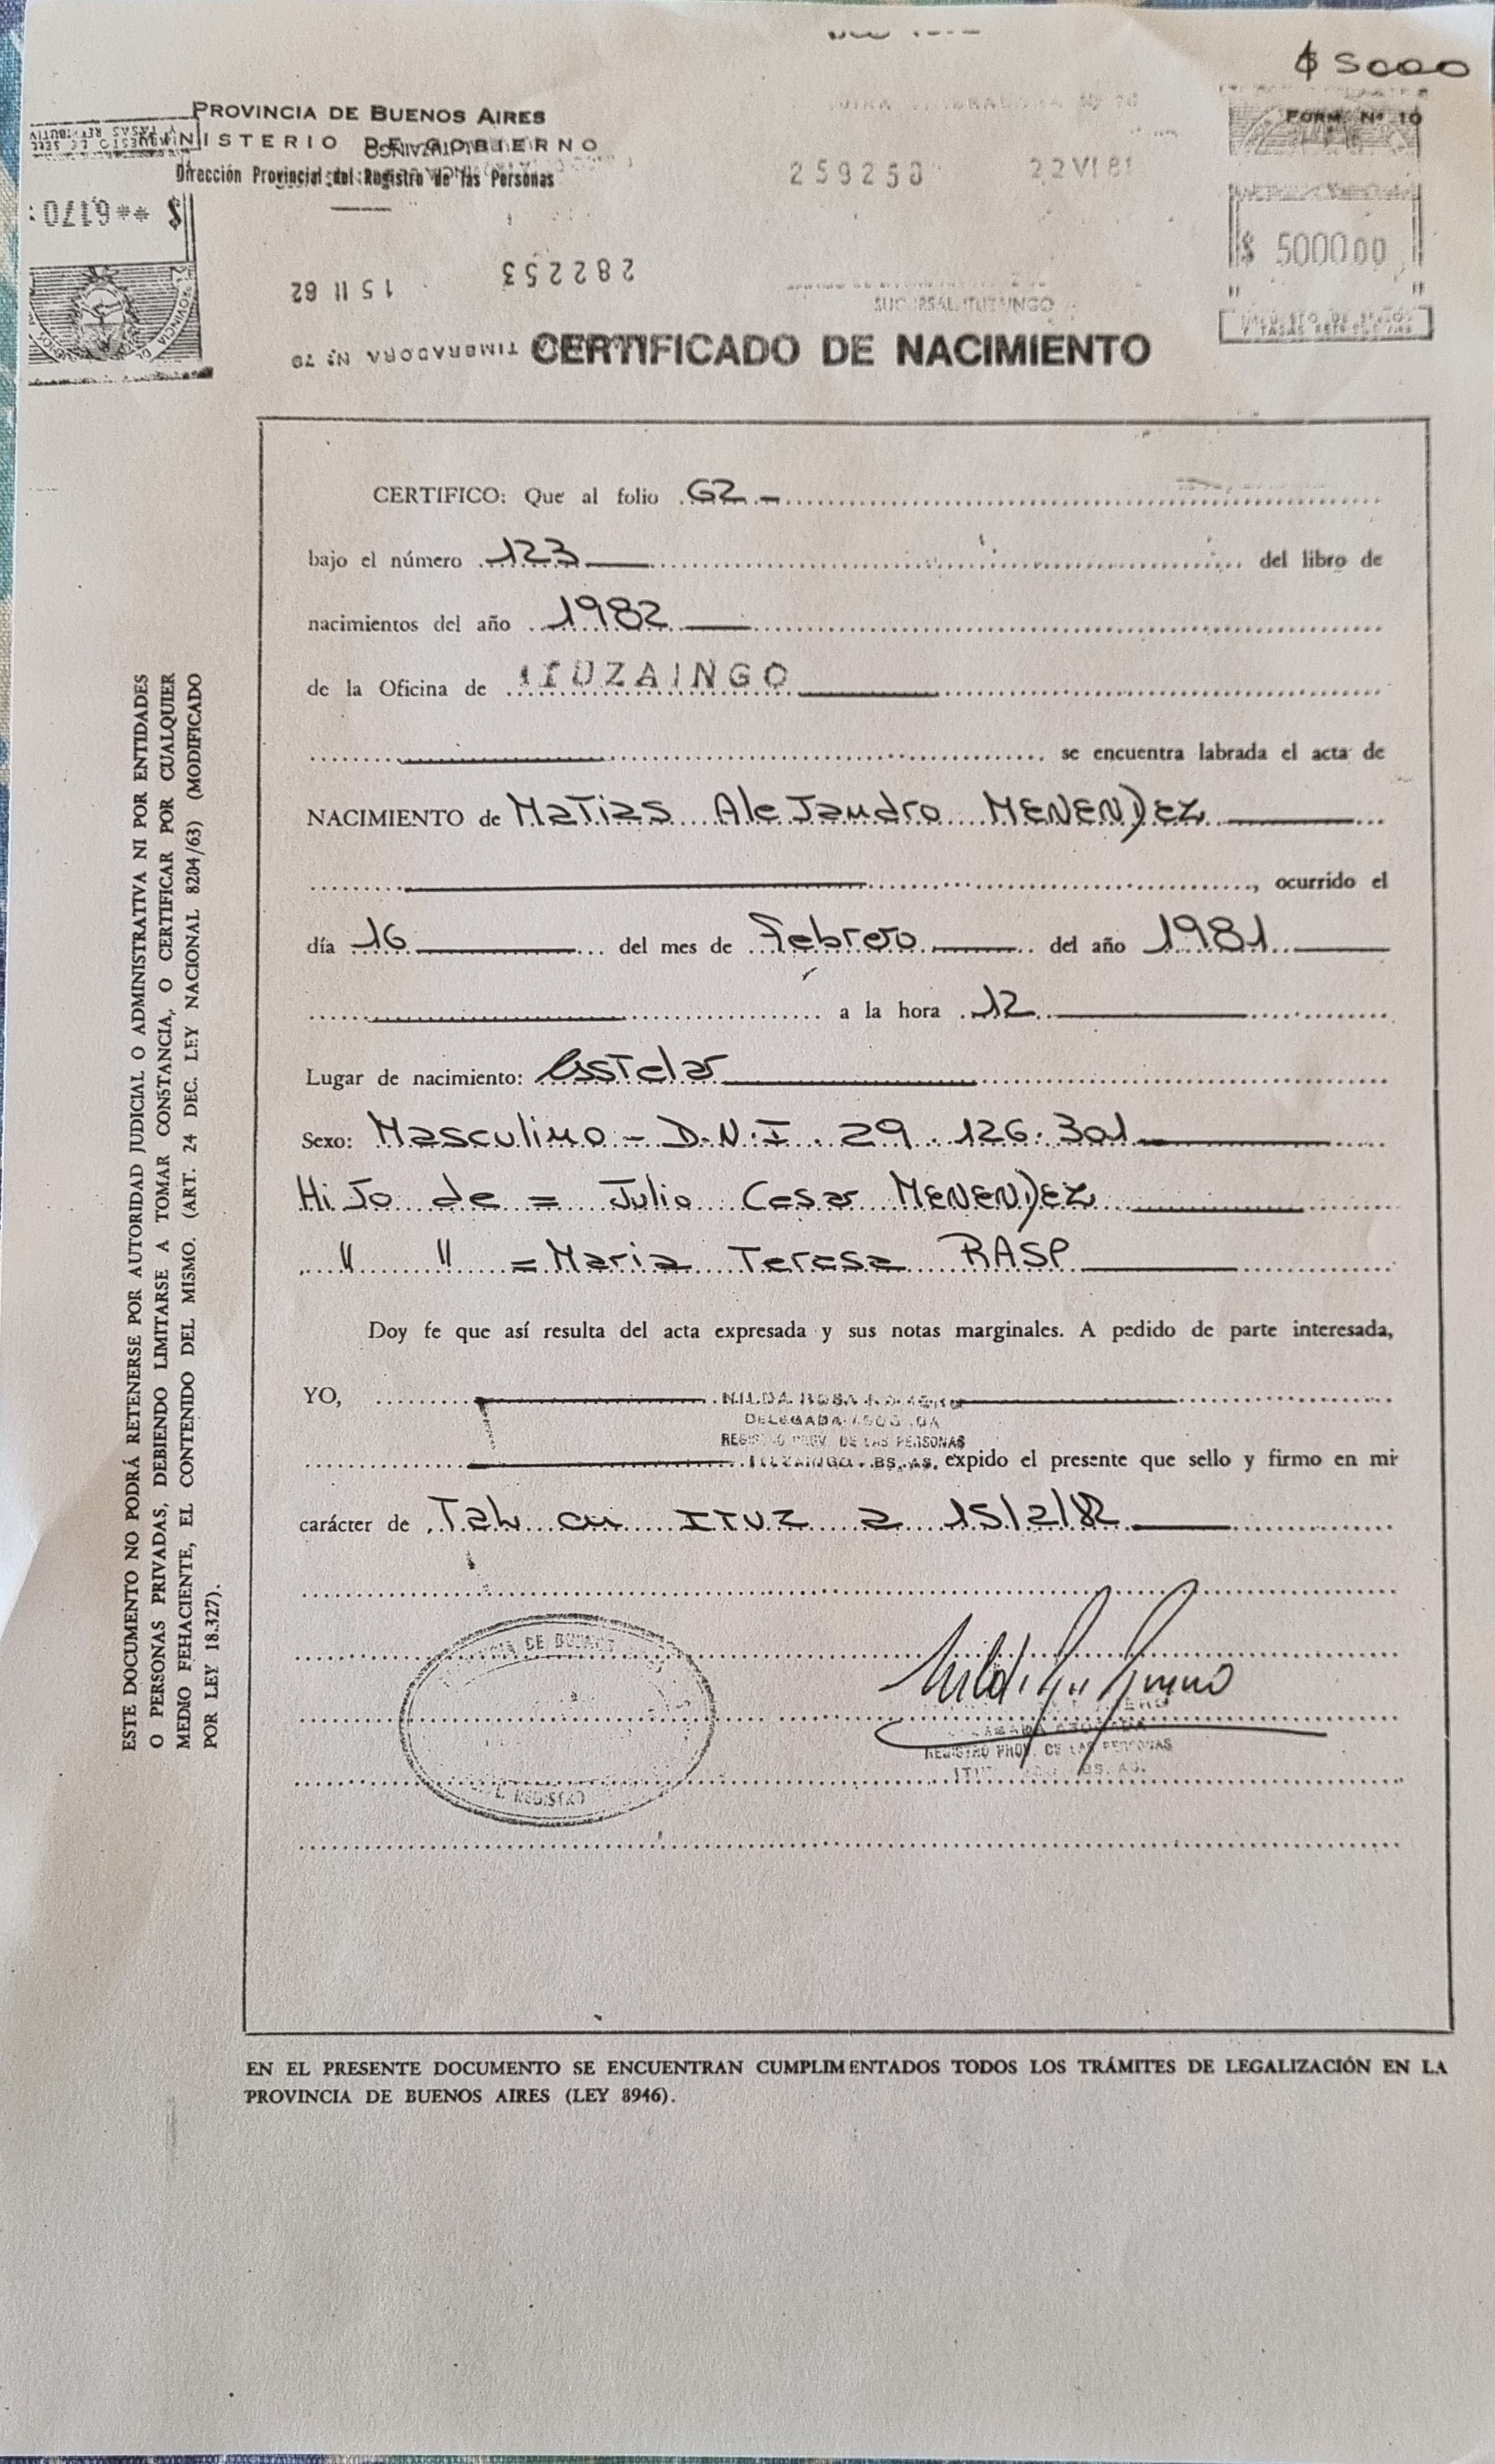 $ 5000
PROVINCIA DE BUENOS AIRES
MINISTERIO DE GOBIERNO
Dirección Provincial del Registro de las Personas
FORM. Nº 10
259258 22 VI 81
$ **6,170
$ 5000,00
282253
15 II 82
SUCURSAL ITUZAINGO
TIMBRADORA Nº 79
CERTIFICADO DE NACIMIENTO
CERTIFICO: Que al folio 62 -
bajo el número 123 del libro de
nacimientos del año 1982
de la Oficina de ITUZAINGO
se encuentra labrada el acta de
NACIMIENTO de Matias Alejandro MENENDEZ
, ocurrido el
día 16 del mes de Febrero del año 1981
a la hora 12
Lugar de nacimiento: Castelar
Sexo: Masculino - D.N.I. 29.126.301
Hijo de = Julio Cesar MENENDEZ
" " = Maria Teresa RASP
Doy fe que así resulta del acta expresada y sus notas marginales. A pedido de parte interesada,
YO, NILDA ROSA ROMERO
DELEGADA
REGISTRO PROV. DE LAS PERSONAS
ITUZAINGO - BS. AS. expido el presente que sello y firmo en mi
carácter de Tal en ITUZ a 15/2/82
REGISTRO PROV. DE LAS PERSONAS
BS. AS.
DE BUENOS
REGISTRO
ESTE DOCUMENTO NO PODRÁ RETENERSE POR AUTORIDAD JUDICIAL O ADMINISTRATIVA NI POR ENTIDADES
O PERSONAS PRIVADAS, DEBIENDO LIMITARSE A TOMAR CONSTANCIA, O CERTIFICAR POR CUALQUIER
MEDIO FEHACIENTE, EL CONTENIDO DEL MISMO. (ART. 24 DEC. LEY NACIONAL 8204/63) (MODIFICADO
POR LEY 18.327).
EN EL PRESENTE DOCUMENTO SE ENCUENTRAN CUMPLIMENTADOS TODOS LOS TRÁMITES DE LEGALIZACIÓN EN LA
PROVINCIA DE BUENOS AIRES (LEY 8946).